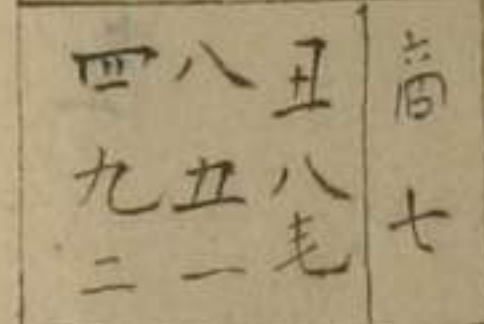 商七
丑八毛
八五一
四九二